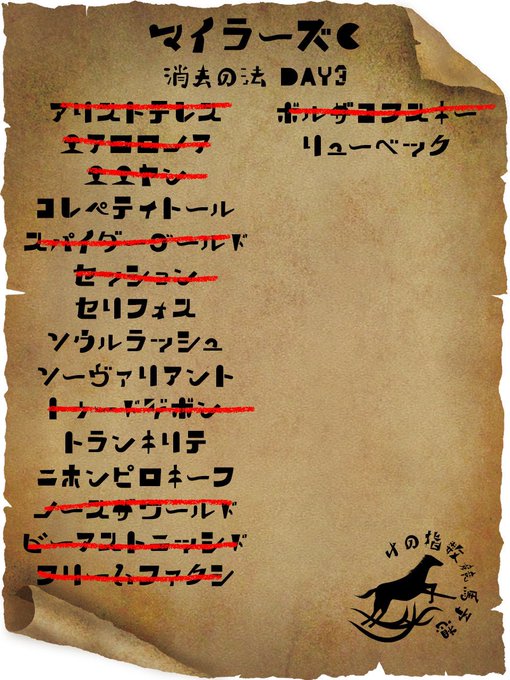 マイラーズC
消去の法 DAY3
アリストテレス
エアロロノア
エエヤン
コレペティトール
スパイダーゴールド
セッション
セリフォス
ソウルラッシュ
ソーヴァリアント
トゥードジボン
トランキリテ
ニホンピロキーフ
ノースザワールド
ビーアストニッシド
フリームファクシ
ボルザコフスキー
リューベック
の指数競馬予想